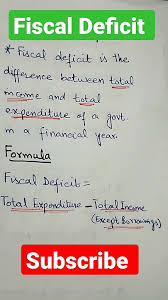 Fiscal Deficit
* Fiscal deficit is the
difference between total
income and total
expenditure of a govt.
in a financial year.
Formula
Fiscal Deficit =
Total Expenditure - Total Income
(Except Borrowings)
Subscribe